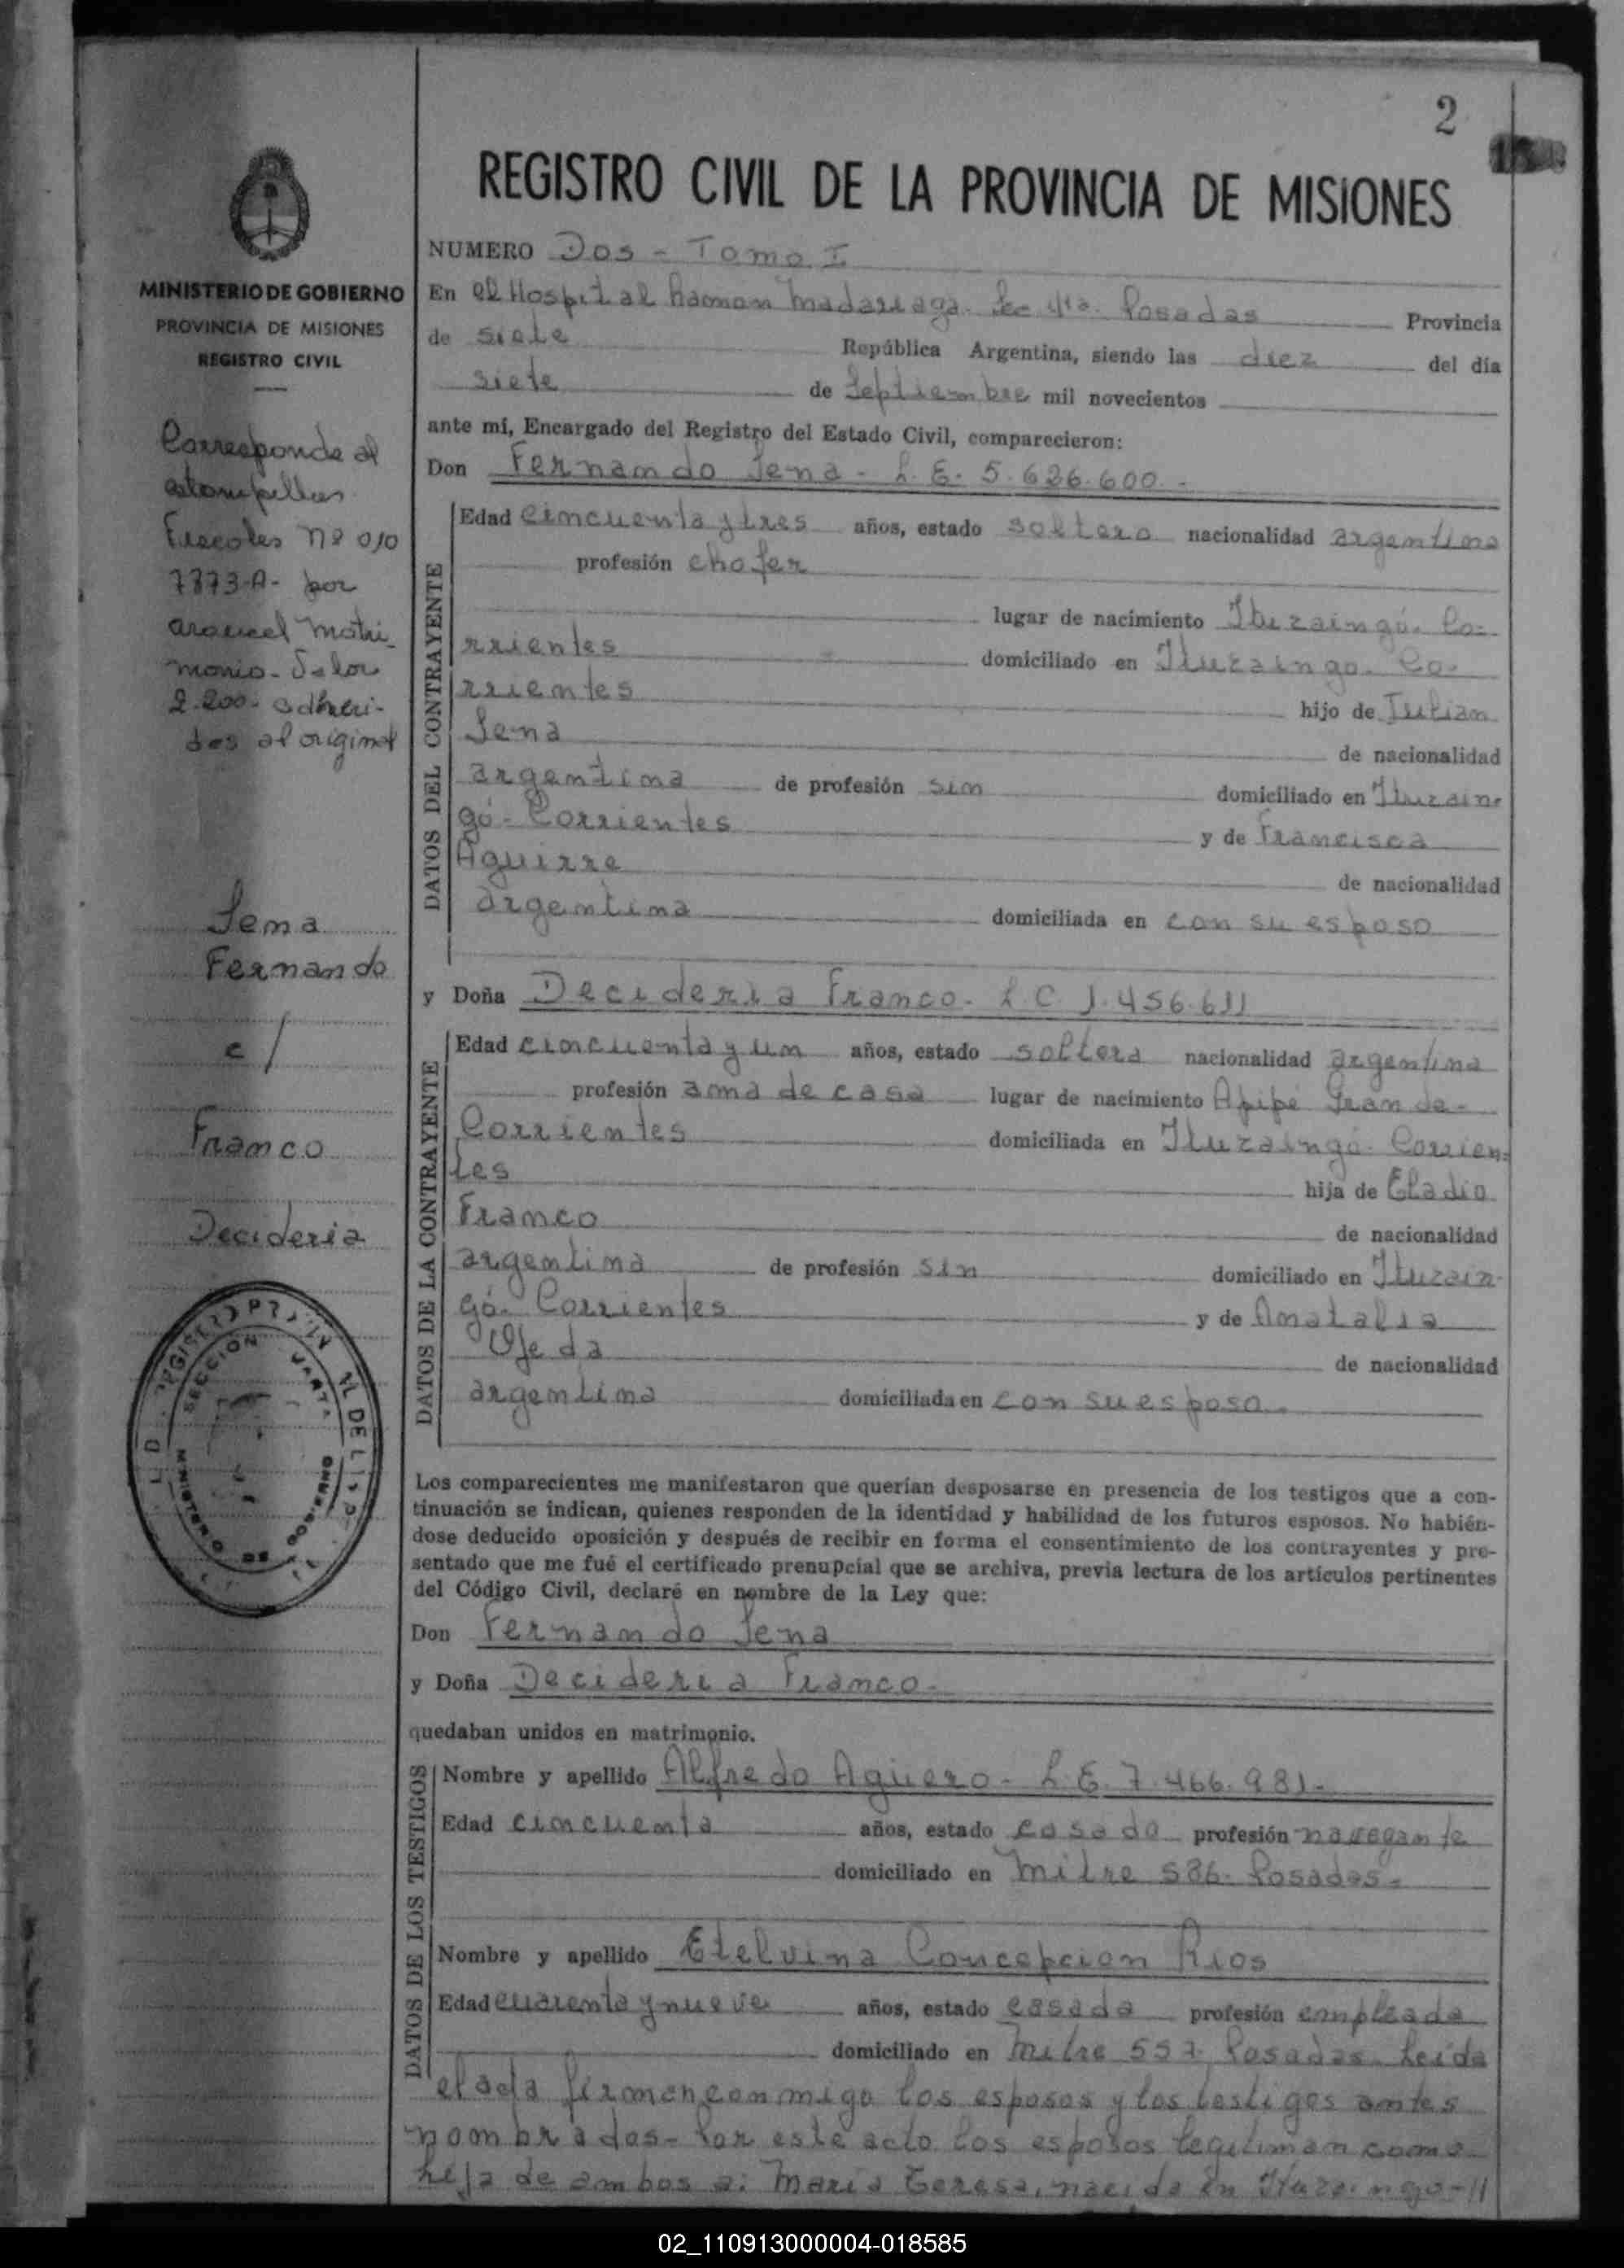 2
REGISTRO CIVIL DE LA PROVINCIA DE MISIONES
NUMERO Dos - Tomo I
En el Hospital Ramon Madariaga. Sec 4ta. Posadas Provincia
de siete República Argentina, siendo las diez del día
siete de Septiembre mil novecientos
ante mí, Encargado del Registro del Estado Civil, comparecieron:
Don Fernando Sena - L. E. 5.626.600. -
DATOS DEL CONTRAYENTE
Edad cincuenta y tres años, estado soltero nacionalidad argentina
profesión chofer
lugar de nacimiento Ituzaingó. Co-
rrientes domiciliado en Ituzaingo. Co-
rrientes hijo de Julian
Sena de nacionalidad
argentina de profesión sin domiciliado en Ituzain-
gó - Corrientes y de Francisca
Aguirre de nacionalidad
argentina domiciliada en con su esposo
y Doña Decideria Franco - L C 1.456.611
DATOS DE LA CONTRAYENTE
Edad cincuenta y un años, estado soltera nacionalidad argentina
profesión ama de casa lugar de nacimiento Apipé Grande -
Corrientes domiciliada en Ituzaingó - Corrien-
tes hija de Eladio
Franco de nacionalidad
argentina de profesión sin domiciliado en Ituzain-
gó - Corrientes y de Anatalia
Ojeda de nacionalidad
argentina domiciliada en con su esposo.
Los comparecientes me manifestaron que querían desposarse en presencia de los testigos que a con-
tinuación se indican, quienes responden de la identidad y habilidad de los futuros esposos. No habién-
dose deducido oposición y después de recibir en forma el consentimiento de los contrayentes y pre-
sentado que me fué el certificado prenupcial que se archiva, previa lectura de los artículos pertinentes
del Código Civil, declaré en nombre de la Ley que:
Don Fernando Sena
y Doña Decideria Franco -
quedaban unidos en matrimonio.
DATOS DE LOS TESTIGOS
Nombre y apellido Alfredo Aguero - L. E. 7.466.981 -
Edad cincuenta años, estado casado profesión navegante
domiciliado en Mitre 586. Posadas -
Nombre y apellido Etelvina Concepcion Rios
Edad cuarenta y nueve años, estado casada profesión empleada
domiciliado en Mitre 557 Posadas. Leida
el acta firman conmigo los esposos y los testigos antes
nombrados - Por este acto los esposos legitiman como
hija de ambos a: Maria Teresa, nacida en Ituzaingo - 11
MINISTERIO DE GOBIERNO
PROVINCIA DE MISIONES
REGISTRO CIVIL
Corresponde al
estampillas
Fiscales Nº 010
7873-A- por
arancel Matri-
monio - Valor
2.200 - adheri-
das al original
Sena
Fernando
c/
Franco
Decideria
SECCION
02_110913000004-018585